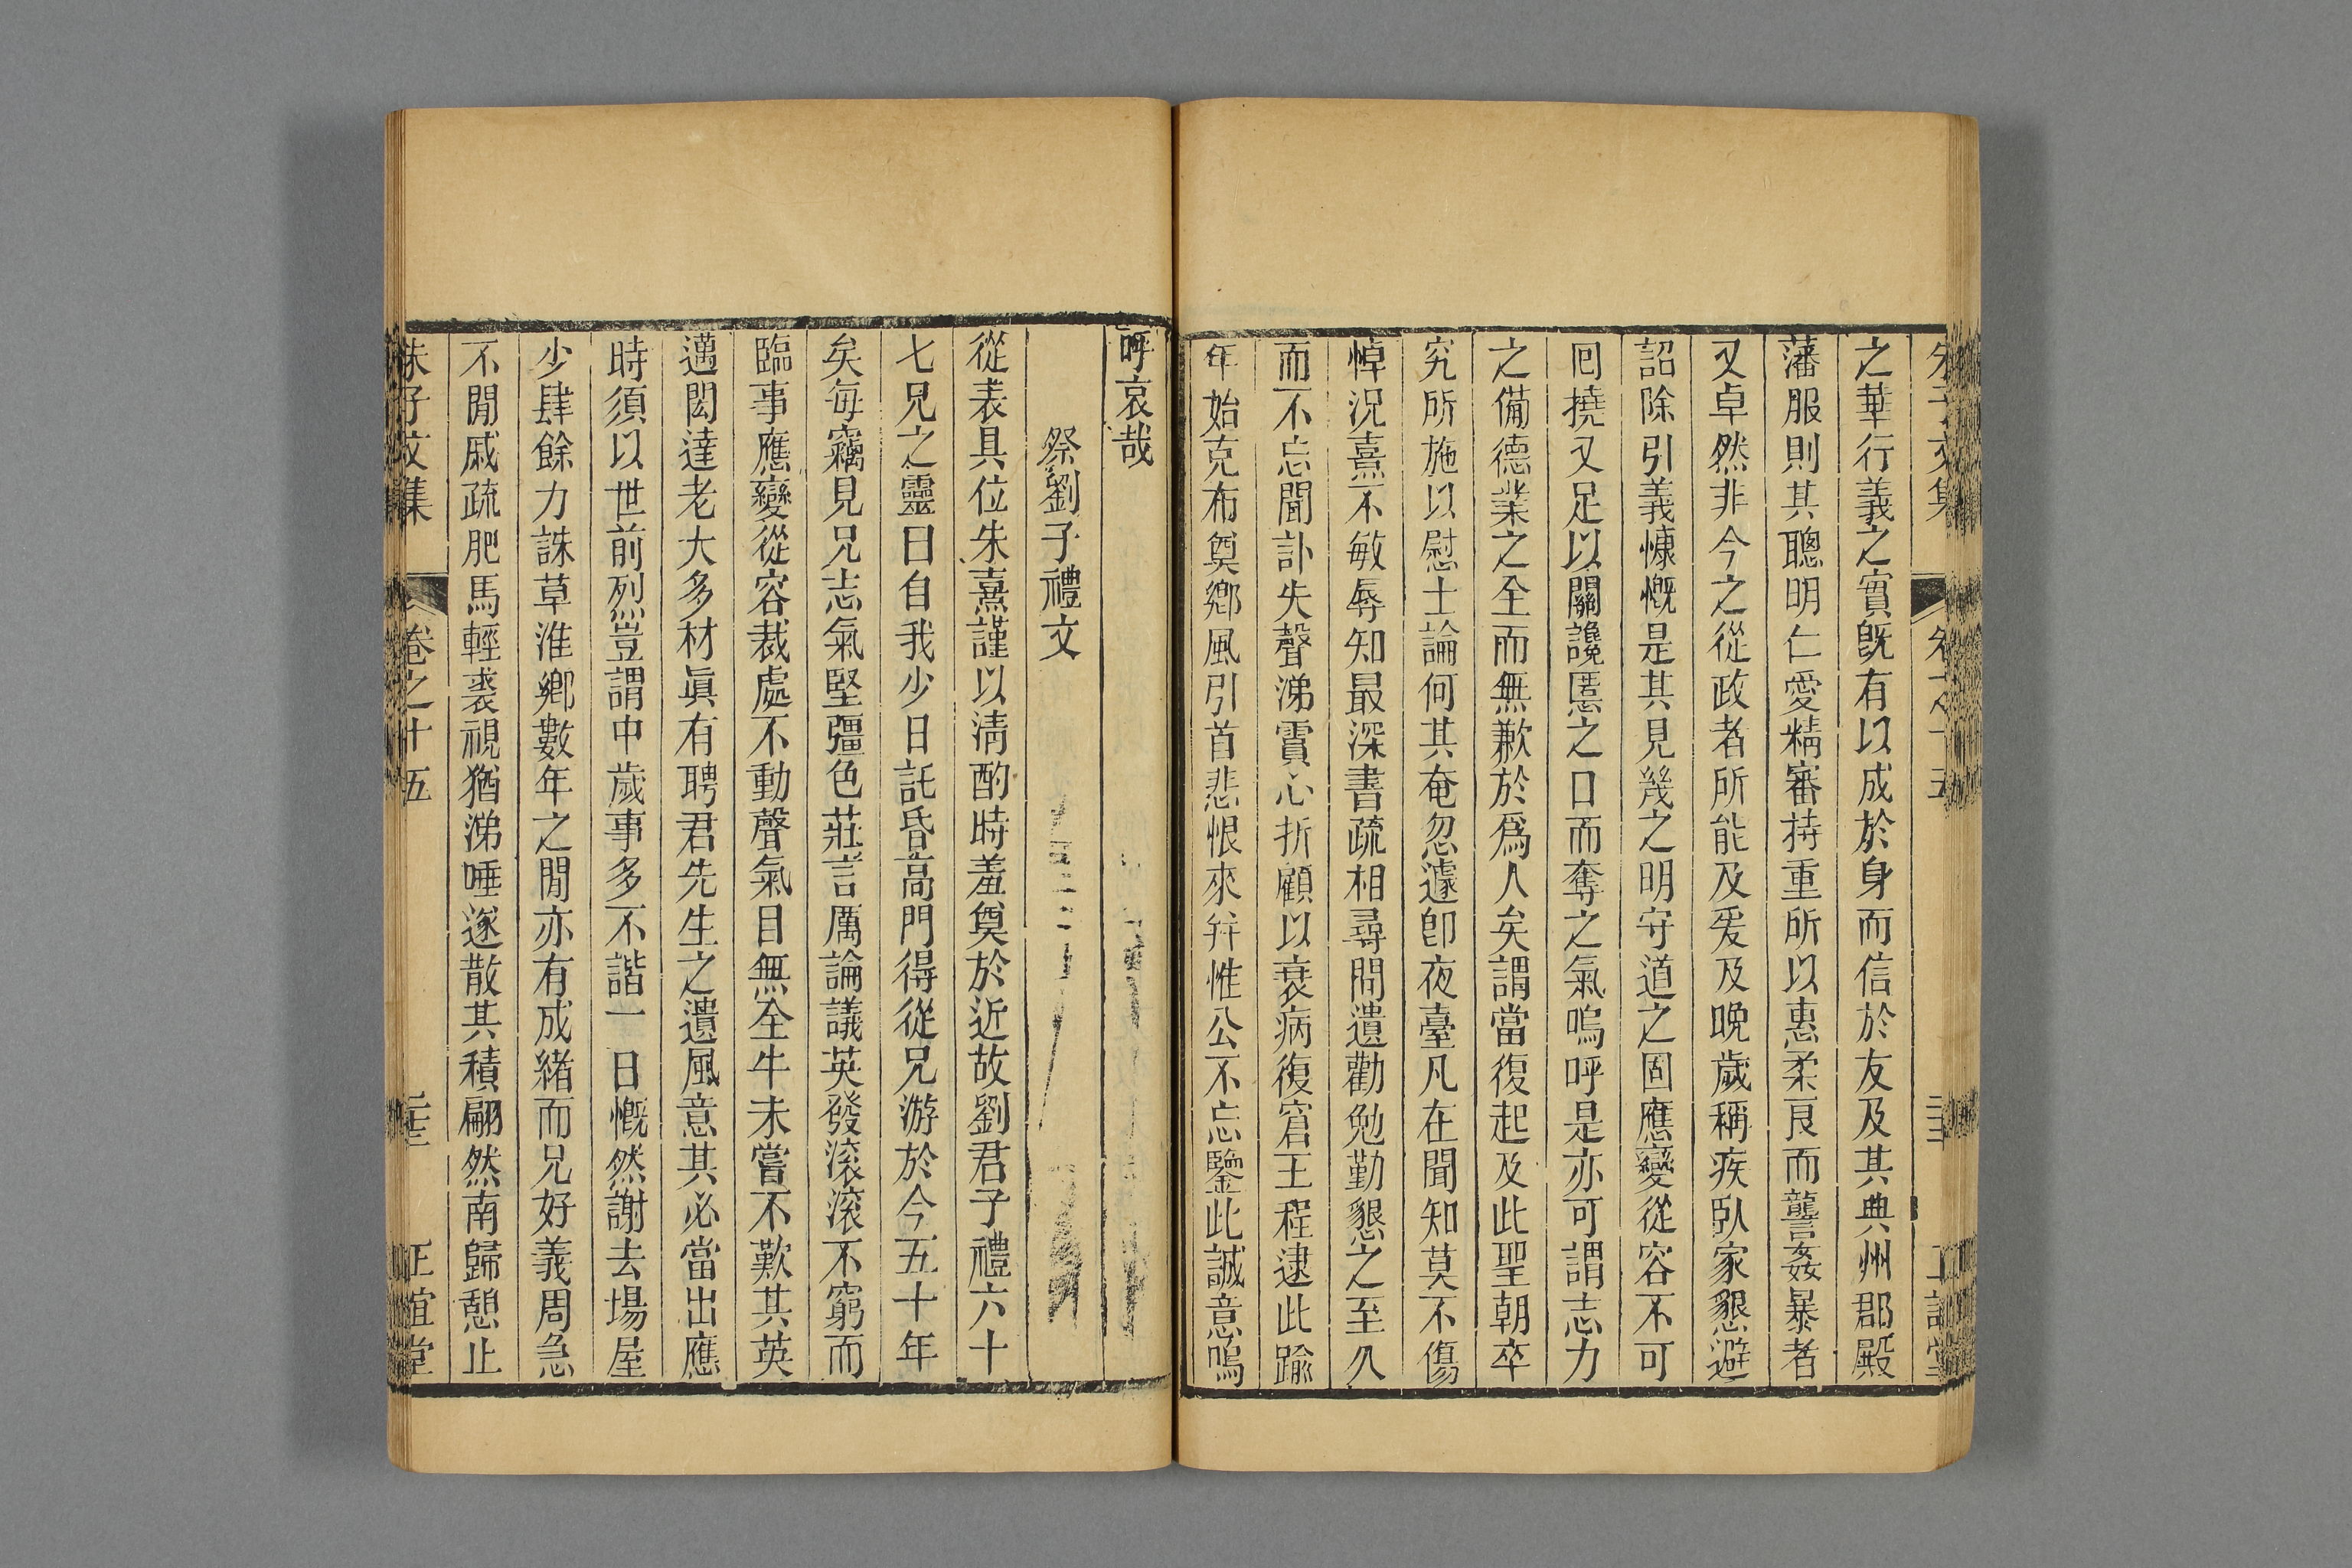 之華行義之實旣有以成於身而信於友及其典州郡殿
藩服則其聰明仁愛精審持重所以惠柔良而讋姦暴者
又卓然非今之從政者所能及爰及晚歲稱疾臥家懇避
詔除引義慷慨是其見幾之明守道之固應變從容不可
囘撓又足以關讒慝之口而奪之氣嗚呼是亦可謂志力
之備德業之至而無歉於爲人矣謂當復起及此聖朝卒
究所施以慰士論何其奄忽遽卽夜臺凡在聞知莫不傷
悼況熹不敏辱知最深書疏相尋問遺勸勉勤懇之至久
而不忘聞訃失聲涕霣心折顧以衰病復窘王程逮此踰
年始克布奠鄉風引首悲恨來幷惟公不忘鑒此誠意嗚
呼哀哉
祭劉子禮文
從表具位朱熹謹以淸酌時羞奠於近故劉君子禮六十
七兄之靈曰自我少日託昏高門得從兄游於今五十年
矣每竊見兄志氣堅彊色莊言厲論議英發滚滚不窮而
臨事應變從容裁處不動聲氣目無全牛未嘗不歎其英
邁閎達老大多材眞有聘君先生之遺風意其必當出應
時須以世前烈豈謂中歲事多不諧一日慨然謝去場屋
少肆餘力誅草淮鄉數年之閒亦有成緒而兄好義周急
不閒戚疏肥馬輕裘視猶涕唾遂散其積翩然南歸憩止
朱子文集 卷之十五 三十三 正誼堂